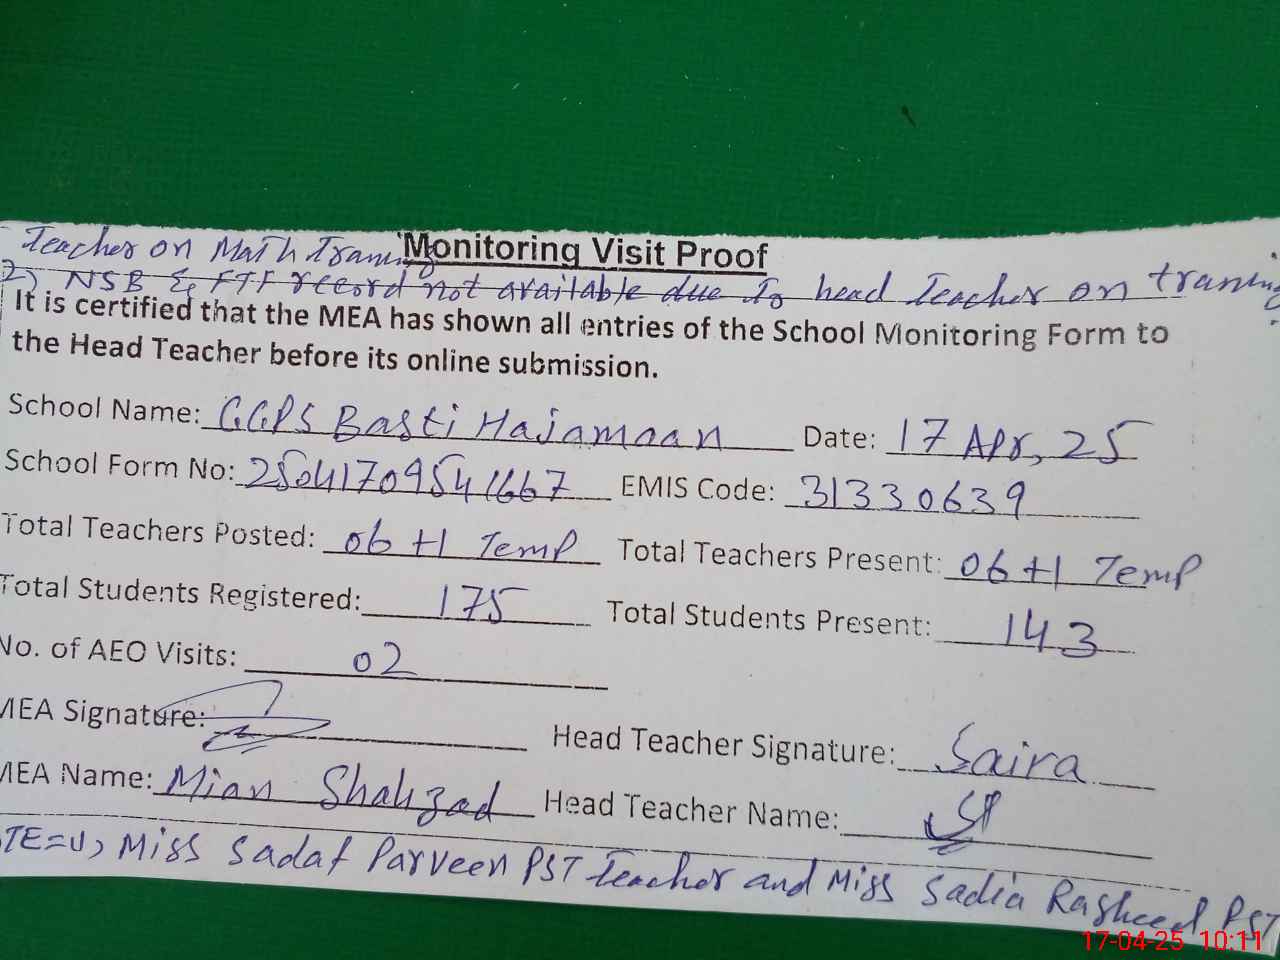 Teacher on Math Traning
Monitoring Visit Proof
2) NSB & FTF record not available due To head Teacher on traning
It is certified that the MEA has shown all entries of the School Monitoring Form to
the Head Teacher before its online submission.
School Name: GGPS Basti Hajamaan Date: 17 Apr, 25
School Form No: 25041709541667 EMIS Code: 31330639
Total Teachers Posted: 06 +1 Temp Total Teachers Present: 06 +1 Temp
Total Students Registered: 175 Total Students Present: 143
No. of AEO Visits: 02
MEA Signature: Head Teacher Signature: Saira
MEA Name: Mian Shahzad Head Teacher Name:
TE=1, Miss Sadaf Parveen PST Teacher and Miss Sadia Rasheed PST
17-04-25 10:11